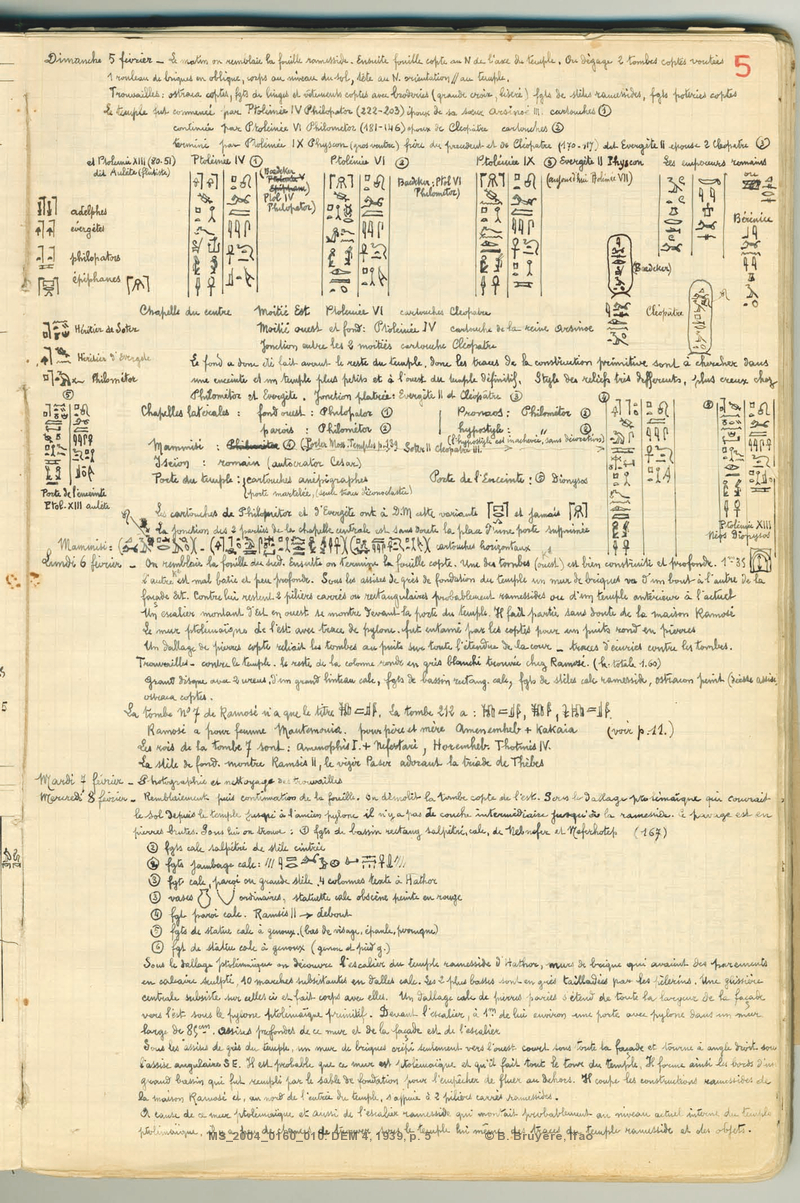 5
Dimanche 5 février _ Le matin on remblaie la fouille ramesside. Ensuite fouille copte au N de l'axe du temple. On dégage 2 tombes coptes voutées
1 rouleau de briques en oblique, corps au niveau du sol, tête au N. orientation // au temple.
Trouvailles: ostraca coptes, fgts de linges et vêtements coptes avec broderies (grande croix, liseré) fgts de stèles ramessides, fgts poteries coptes
Le temple fut commencé par Ptolémée IV Philopator (222-203) époux de sa soeur Arsinoé III. cartouches ①
continuée par Ptolémée VI Philometor (181-146) époux de Cleopâtre cartouches ②
terminé par Ptolémée IX Physcon (gros ventre) frère du precedent et de Cléopatre (170-117) dit Evergète II epouse 2 Cleopatre ③
et Ptolemée XIII (80-51)
dit Aulète (flutiste)
Ptolémée IV ①
Ptolémée VI ②
Ptolémée IX ③ Evergète II Physcon
Les empereurs romains
(Baedeker
Ptol IV
Philopator)
Baedeker: Ptol VI
Philometor
(aujourd'hui Ptolémée VII)
ou
Bérénice
adelphes
évergètes
philopators
épiphanes
(Baedeker)
Cléopâtre
Chapelle du centre Moitié Est Ptolemée VI cartouches Cleopatre
Moitié ouest et fond: Ptolémée IV cartouche de la reine Arsinoe
Jonction entre les 2 moitiés cartouche Cléopatre
Héritier de Soter
Héritier d'Evergete
Philométor
Le fond a donc été fait avant le reste du temple, donc les traces de la construction primitive sont à chercher dans
une enceinte et un temple plus petits et à l'ouest du temple définitif. Style des reliefs très differents, plus creux chez
Philométor et Evergète. Jonction platrée: Evergète II et Cléopâtre ③
Chapelles latérales: fond ouest: Philopator ① Pronaos: Philométor ②
parois: Philométor ② hypostyle: " ②
(l'hypostyle est inachevée, sans décoration)
Mammisi: (Porter Moss. Temples p. Soter II Cleopatre III.
Iseion: romain (autocrator Cesar)
Porte du temple: cartouches anépigraphes Porte de l'Enceinte: ⑤ Dionysos
(porte martelée,
⑤
Porte de l'enceinte
Ptol. XIII aulète
Ptolémée XIII
Néos Dionysos
Les cartouches de Philopator et d'Evergète ont à D.M cette variante et jamais
La jonction des 2 parties de la chapelle centrale est sans doute la place d'une porte supprimée
Mammisi: cartouches horizontaux
Lundi 6 février _ On remblaie la fouille du sud. Ensuite on termine la fouille copte. Une des tombes (ouest) est bien construite et profonde. 1m35
L'autre est mal batie et peu profonde. Sous les assises de grès de fondation du temple un mur de briques va d'un bout à l'autre de la
façade Est. Contre lui restent 2 piliers carrés ou rectangulaires probablement ramessides ou d'un temple antérieur à l'actuel
Un escalier montant d'est en ouest se montre devant la porte du temple. Il fait partie sans doute de la maison Ramosé
Le mur ptolémaïque de l'est avec trace de pylone fut entamé par les coptes pour un puits rond en pierres
Un dallage de pierres copte reliait les tombes au puits sur toute l'étendue de la cour _ traces d'écuries contre les tombes.
Trouvailles _ contre le temple. le reste de la colonne ronde en grès blanchi trouvée chez Ramosé. (h. totale 1.60)
Grand disque avec 2 ureus, d'un grand linteau calc, fgts de bassin rectang. calc, fgts de stèles calc ramesside, ostracon peint (déesse assise
ostraca coptes.
La tombe N° 7 de Ramosé n'a que le titre La tombe 212 a:
Ramosé a pour femme Moutemouia. pour père et mère Amenemheb + Kakaia (voir p.11.)
Les rois de la tombe 7 sont: Amenophis I. + Nefertari, Horemheb. Thotmès IV.
La stèle de fond. montre Ramsès II, le vizir Paser adorant la triade de Thèbes
Mardi 7 février _ Photographie et nettoyage des trouvailles
Mercredi 8 février _ Remblaiement puis continuation de la fouille. On démolit la tombe copte de l'est. Sous le dallage ptolémaïque qui couvrait
le sol depuis le temple jusqu'à l'ancien pylone il n'y a pas de couche intermédiaire jusqu'à la ramesside. Le pavage est en
pierres brutes. Sous lui on trouve: ① fgts de bassin rectang salpêtré, calc, de Nebnefer et Neferhotep (167)
② fgts calc salpêtré de stèle cintrée
fgts jambage calc:
③ fgt calc, paroi ou grande stèle 4 colonnes texte à Hathor
③ vases ordinaires, statuette calc obscène peinte en rouge
④ fgt paroi calc. Ramsès II → debout
⑤ fgts de statue calc à genoux. (bas de visage, épaule, perruque)
⑥ fgt de statue calc à genoux (genou et pied g.)
Sous le dallage ptolémaïque on découvre l'escalier du temple ramesside d'Hathor, murs de brique qui avaient des parements
en calcaire sculpté 10 marches subsistantes en dalles calc. Les 2 plus basses sont en grès tailladées par les pèlerins. Une glissière
centrale subsiste sur celles ci et fait corps avec elles. Un dallage calc de pierres pariés s'étend de toute la largeur de la façade
vers l'est sous le pylone ptolémaïque primitif. Devant l'escalier, à 1m de lui environ une porte avec pylone dans un mur
large de 85cm. assises profondes de ce mur et de la façade est de l'escalier
Sous les assises de grès du temple, un mur de briques crépi seulement vers l'ouest court sous toute la façade et tourne à angle droit sous
l'assise angulaire S E. Il est probable que ce mur est ptolémaïque et qu'il fait tout le tour du temple. Il forme ainsi les bords d'un
grand bassin qui fut rempli par le sable de fondation pour l'empêcher de fluer au dehors. Il coupe les constructions ramessides de
la maison Ramosé et, au nord de l'entrée du temple, s'appuie à 2 piliers carrés ramessides.
A cause de ce mur ptolémaïque et aussi de l'escalier ramesside qui montait probablement au niveau actuel interne du temple
ptolémaïque, il y a peu de chances de trouver sous le temple lui même des traces du temple ramesside et des objets.
MS_2004_0160_010: DEM 4, 1939, p. 5 © B. Bruyère, Ifao